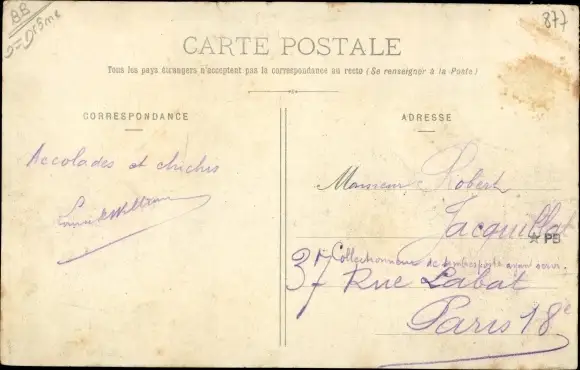 88
877
CARTE POSTALE
Tous les pays étrangers n'acceptent pas la correspondance au recto (Se renseigner à la Poste)
CORRESPONDANCE
ADRESSE
Accolades et chichis
Monsieur Robert
Jacquillat
★ PB
Collectionneur de timbres poste ayant servi.
37 Rue Labat
Paris 18e